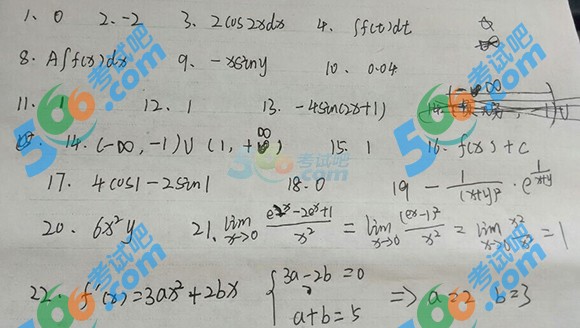 1. 0 2. -2 3. 2cos2xdx 4. ∫f(t)dt
8. A∫f(x)dx 9. -xsiny 10. 0.04
11. 1 12. 1 13. -4sin(2x+1)
14. (-∞, -1)∪(1, +∞) 15. 1 16. f(x)+c
17. 4cos1-2sin1 18. 0 19 -1/(x+y)²·e^(1/(x+y))
20. 6x²y 21. lim x→0 (e^2x-2e^x+1)/x² = lim x→0 (e^x-1)²/x² = lim x→0 x²/x² = 1
22. f'(x)=3ax²+2bx { 3a-2b=0 a+b=5 ⇒ a=2 b=3
566考试吧.com
566考试吧.com
566考试吧.com